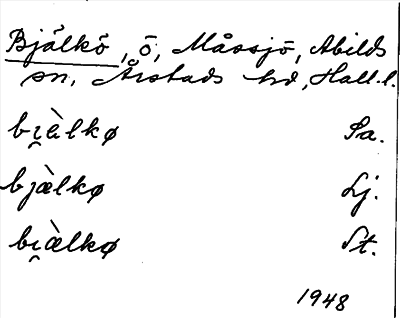 Bjälkö, ö, Måssjö, Abilds
sn, Årstads hd, Hall. l.
bi̯ὰlkø Sa.
bjὰlkø Lj.
bi̯ὰlkø St.
1948